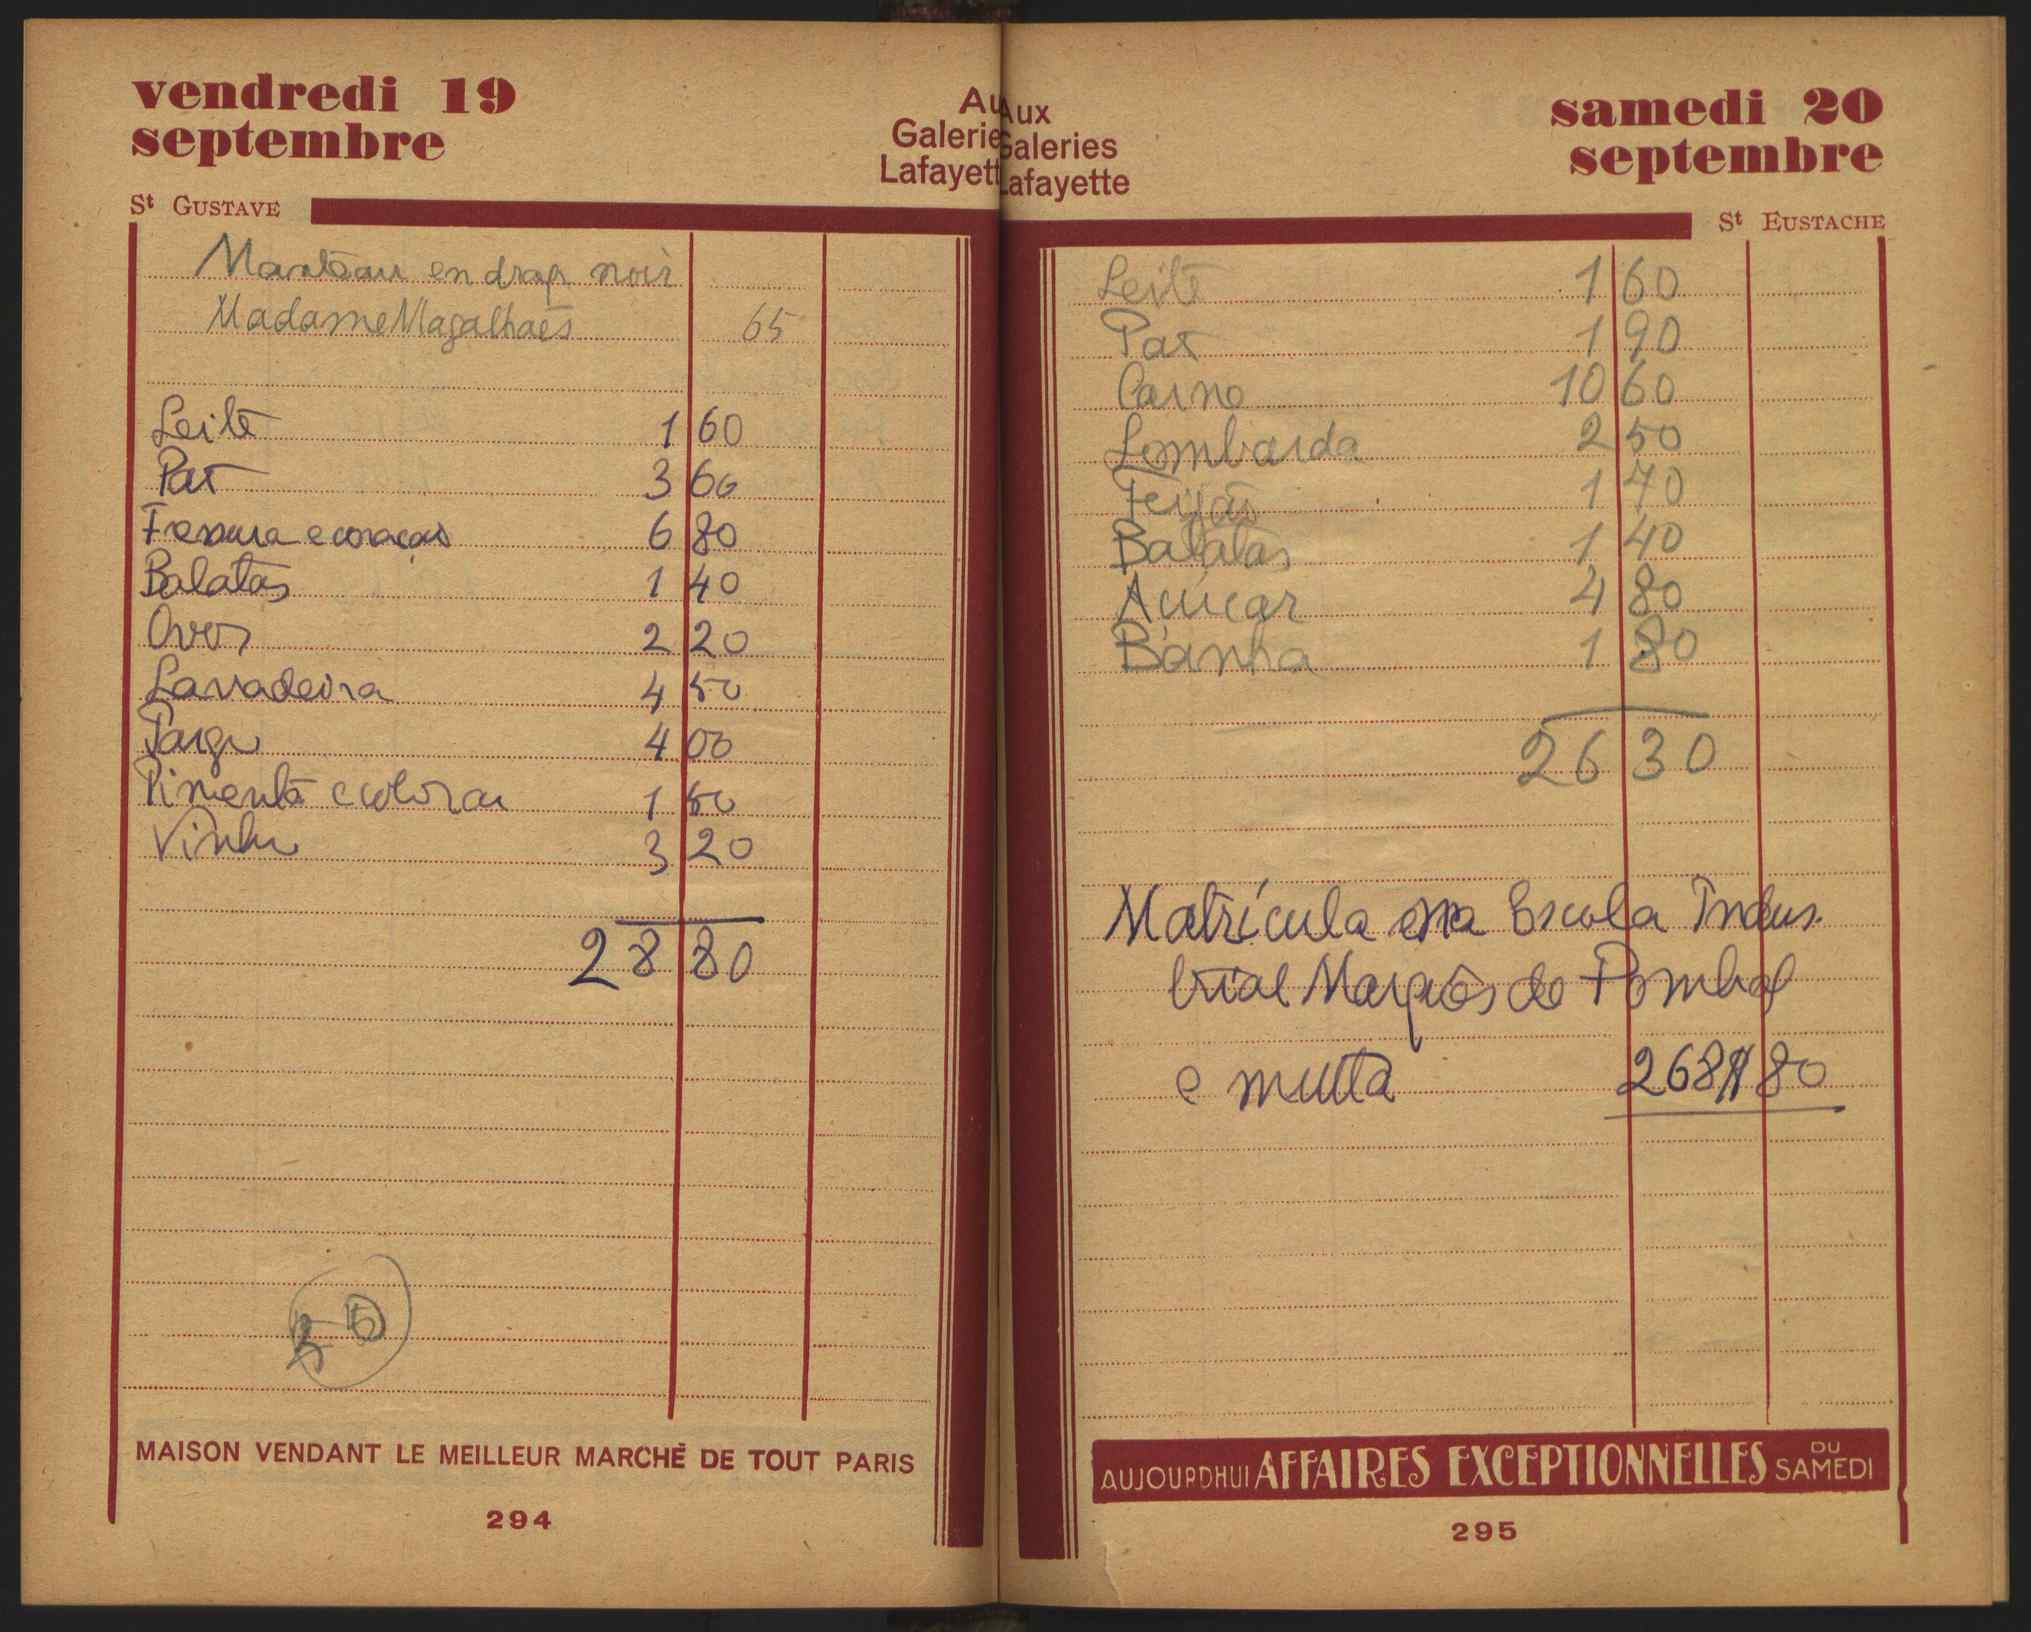 vendredi 19
septembre
Au
Galerie
Lafayett
St GUSTAVE
Manteau en drap noir
Madame Magalhaes 65
Leite 1 60
Pão 3 60
Fressura e coração 6 80
Batatas 1 40
Ovos 2 20
Lavadeira 4 50
Pargo 4 00
Pimenta e colorau 1 50
Vinho 3 20
28 80
MAISON VENDANT LE MEILLEUR MARCHÉ DE TOUT PARIS
294
Aux
Galeries
Lafayette
samedi 20
septembre
St EUSTACHE
Leite 1 60
Pão 1 90
Carne 10 60
Lombarda 2 50
Feijão 1 70
Batatas 1 40
Açúcar 4 80
Banha 1 80
26 30
Matrícula na Escola Indus
trial Marquês de Pombal
e multa 268$80
AUJOURDHUI AFFAIRES EXCEPTIONNELLES DU SAMEDI
295